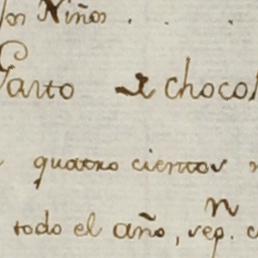 los Niños . . .
Gasto de chocol
quatro cientos
todo el año, seg.n c